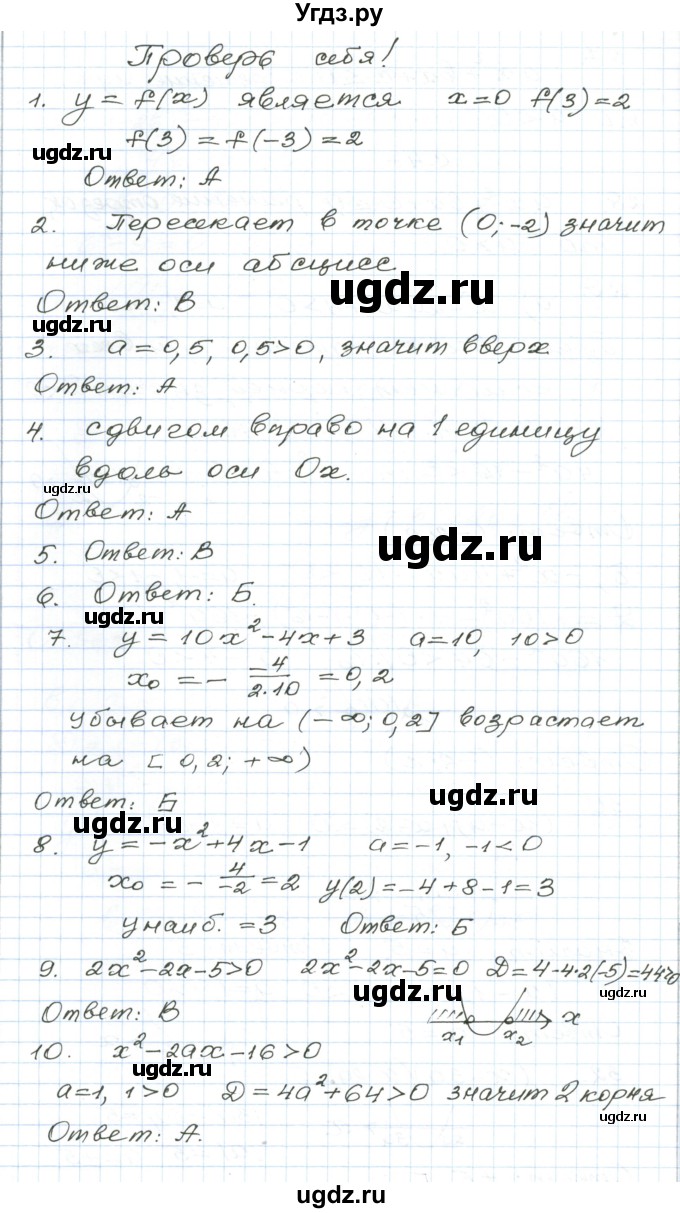 Угдз.ру
Проверь себя!
1. y = f(x) является x=0 f(3)=2
f(3) = f(-3) = 2
ugdz.ru
Ответ: А
2. Пересекает в точке (0;-2) значит
ugdz.ru
ниже оси абсцисс
ugdz.ru
Ответ: В
3. a = 0,5, 0,5>0, значит вверх
Ответ: А
4. сдвигом вправо на 1 единицу
вдоль оси Ox.
ugdz.ru
Ответ: А
ugdz.ru
5. Ответ: В
6. Ответ: Б.
ugdz.ru
7. y = 10x²-4x+3 a=10, 10>0
x₀ = - -4/2·10 = 0,2
ugdz.ru
убывает на (-∞; 0,2] возрастает
ugdz.ru
на [0,2; +∞)
Ответ: Б
ugdz.ru
ugdz.ru
8. y = -x²+4x-1 a=-1, -1<0
x₀ = - 4/-2 = 2 y(2)=-4+8-1=3
унаиб. =3 Ответ: Б
ugdz.ru
9. 2x²-2a-5>0 2x²-2x-5=0 D=4-4·2(-5)=44>0
ugdz.ru
ugdz.ru
Ответ: В
x₁ x₂ x
10. x²-2ax-16>0
ugdz.ru
a=1, 1>0 D=4a²+64>0 значит 2 корня
ugdz.ru
Ответ: А.
ugdz.ru